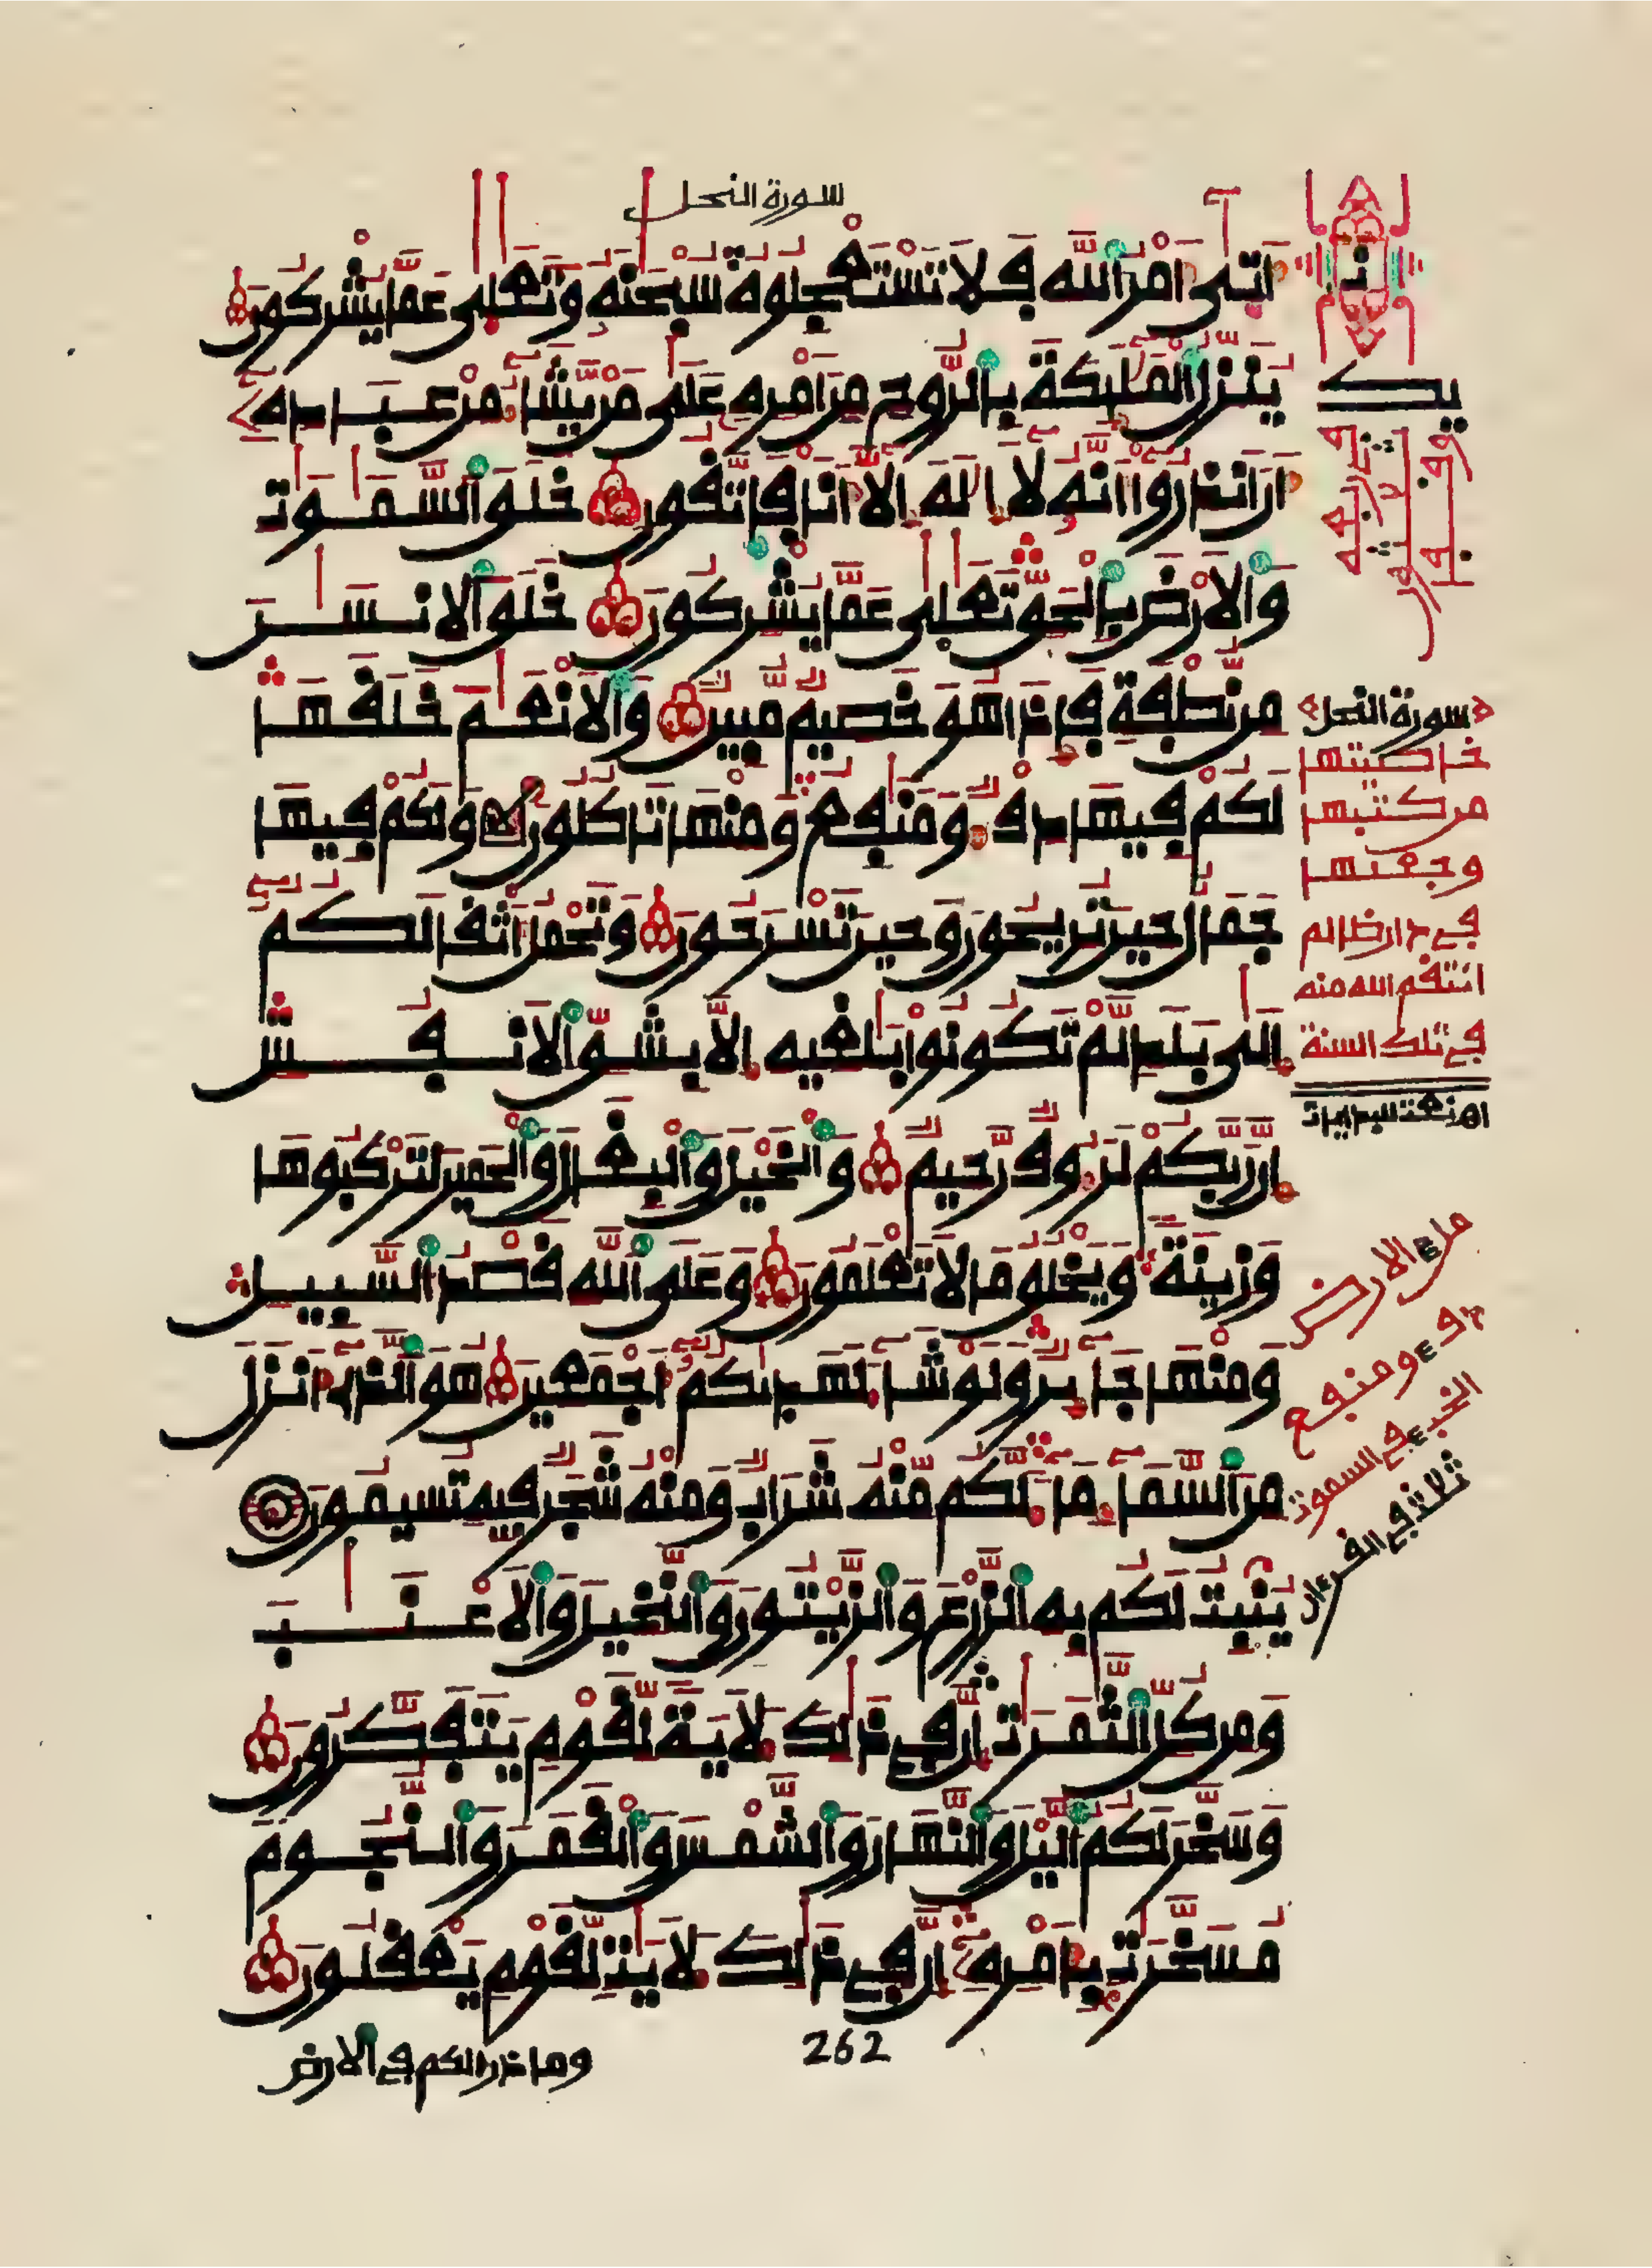 سورة النحل
أتى أمر الله فلا تستعجلوه سبحنه وتعلى عما يشركون
ينزل الملئكة بالروح من أمره على من يشاء من عباده
أن أنذروا أنه لا إله إلا أنا فاتقون خلق السموت
والأرض بالحق تعلى عما يشركون خلق الإنسن
من نطفة فإذا هو خصيم مبين والأنعم خلقها
لكم فيها دفء ومنفع ومنها تأكلون ولكم فيها
جمال حين تريحون وحين تسرحون وتحمل أثقالكم
إلى بلد لم تكونوا بلغيه إلا بشق الأنفس
إن ربكم لرءوف رحيم والخيل والبغال والحمير لتركبوها
وزينة ويخلق ما لا تعلمون وعلى الله قصد السبيل
ومنها جائر ولو شاء لهدىكم أجمعين هو الذي أنزل
من السماء ماء لكم منه شراب ومنه شجر فيه تسيمون
ينبت لكم به الزرع والزيتون والنخيل والأعنب
ومن كل الثمرت إن في ذلك لأية لقوم يتفكرون
وسخر لكم اليل والنهار والشمس والقمر والنجوم
مسخرت بأمره إن في ذلك لأيت لقوم يعقلون
262
وما ذرأ لكم في الأرض
سورة النحل
خاصيتها
من كتبها
وجعلها
في دار ظالم
انتقم الله منه
في تلك السنة
ملء الارض
دفء ومنفع
الخبء في السموت
ثلاثة في القرءان